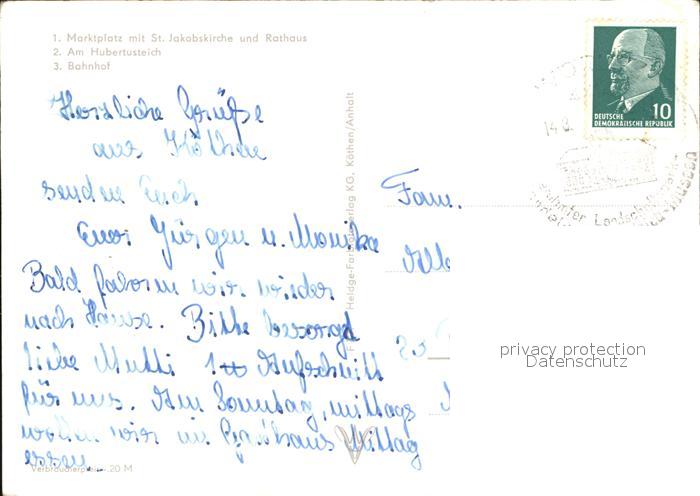 1. Marktplatz mit St. Jakobskirche und Rathaus
2. Am Hubertusteich
3. Bahnhof
Herzliche Grüße
aus Köthen
senden Euch
Euer Jürgen u. Monika
Bald fahren wir wieder
nach Hause. Bitte besorgd
liebe Mutti 1 Aufschnitt
für uns. Am Sonntag, mittags
wollen wir im Gasthaus Mittag
essen.
Verbraucherpreis -.20 M
Verlag KG, Köthen/Anhalt
DEUTSCHE
DEMOKRATISCHE REPUBLIK
10
berühmter Landschafts
Fam.
privacy protection
Datenschutz